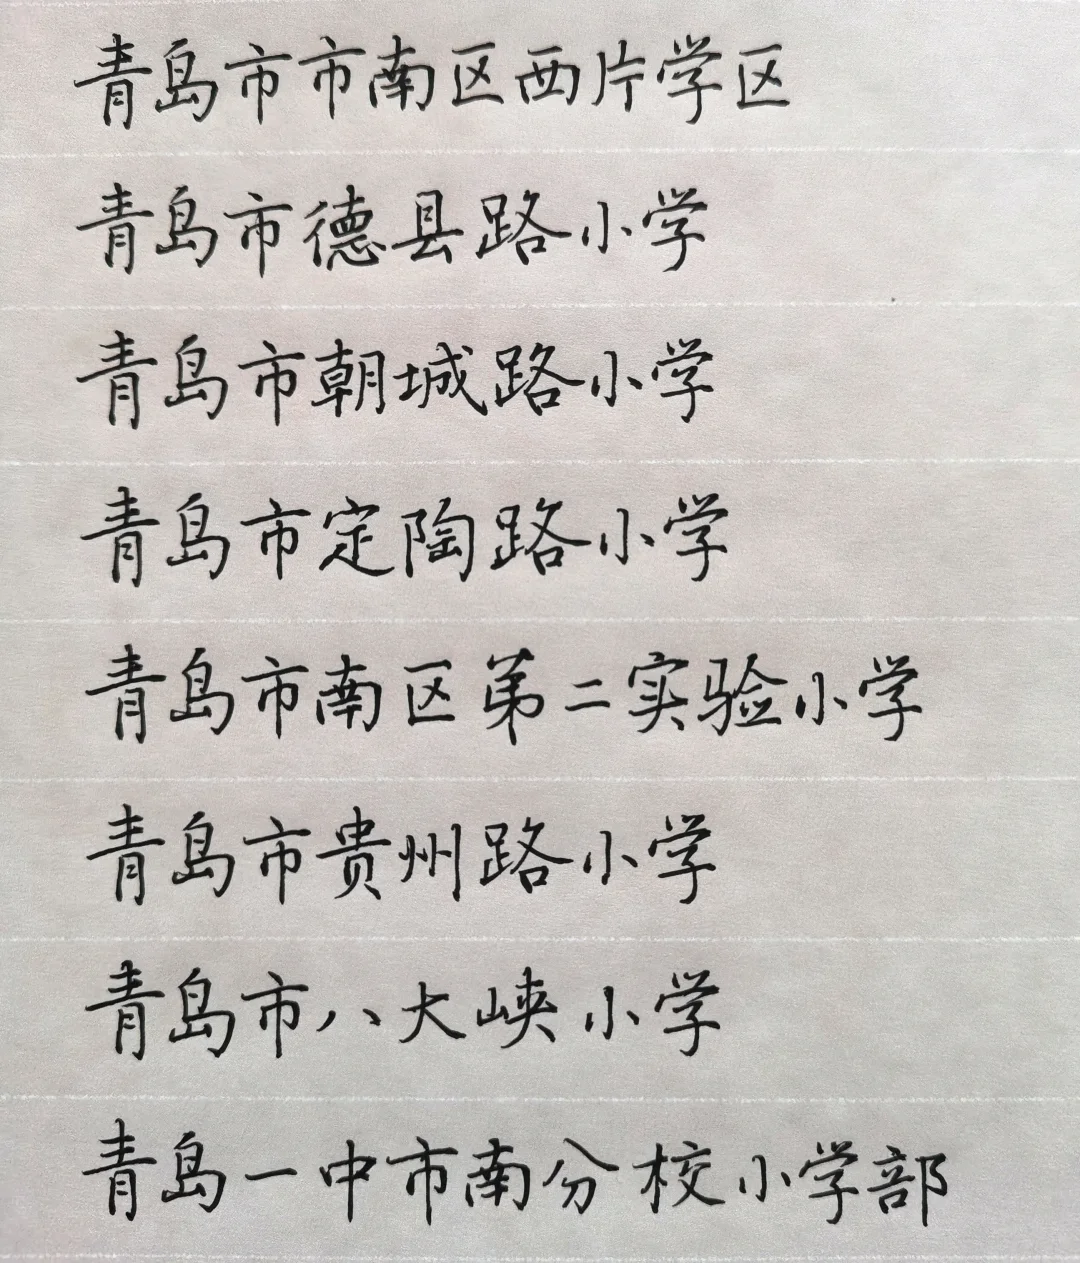 青岛市市南区西片学区
青岛市德县路小学
青岛市朝城路小学
青岛市定陶路小学
青岛市南区第二实验小学
青岛市贵州路小学
青岛市八大峡小学
青岛一中市南分校小学部